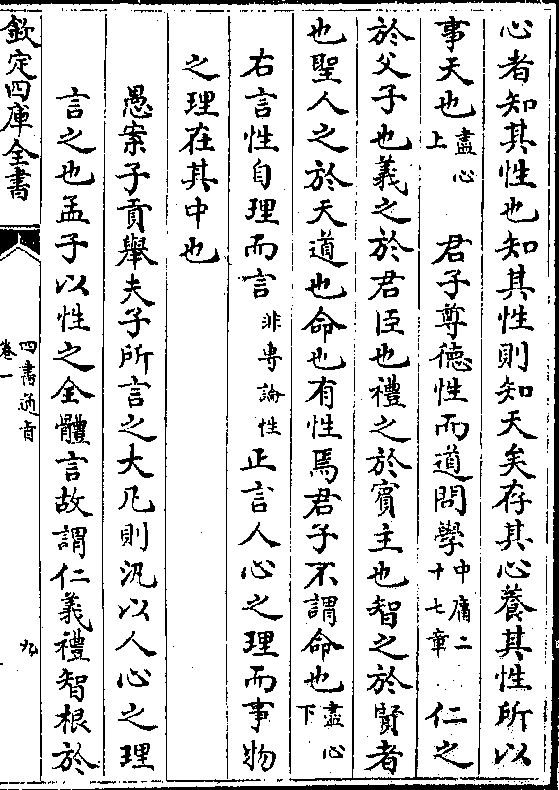 心者知其性也知其性則知天矣存其心養其性所以
事天也盡心上 君子尊德性而道問學中庸二十七章 仁之
於父子也義之於君臣也禮之於賓主也智之於賢者
也聖人之於天道也命也有性焉君子不謂命也盡心下
右言性自理而言非專論性正言人心之理而事物
之理在其中也
愚案子貢舉夫子所言之大凡則汎以人心之理
言之也孟子以性之全體言故謂仁義禮智根於
欽定四庫全書
四書通旨
卷一
九